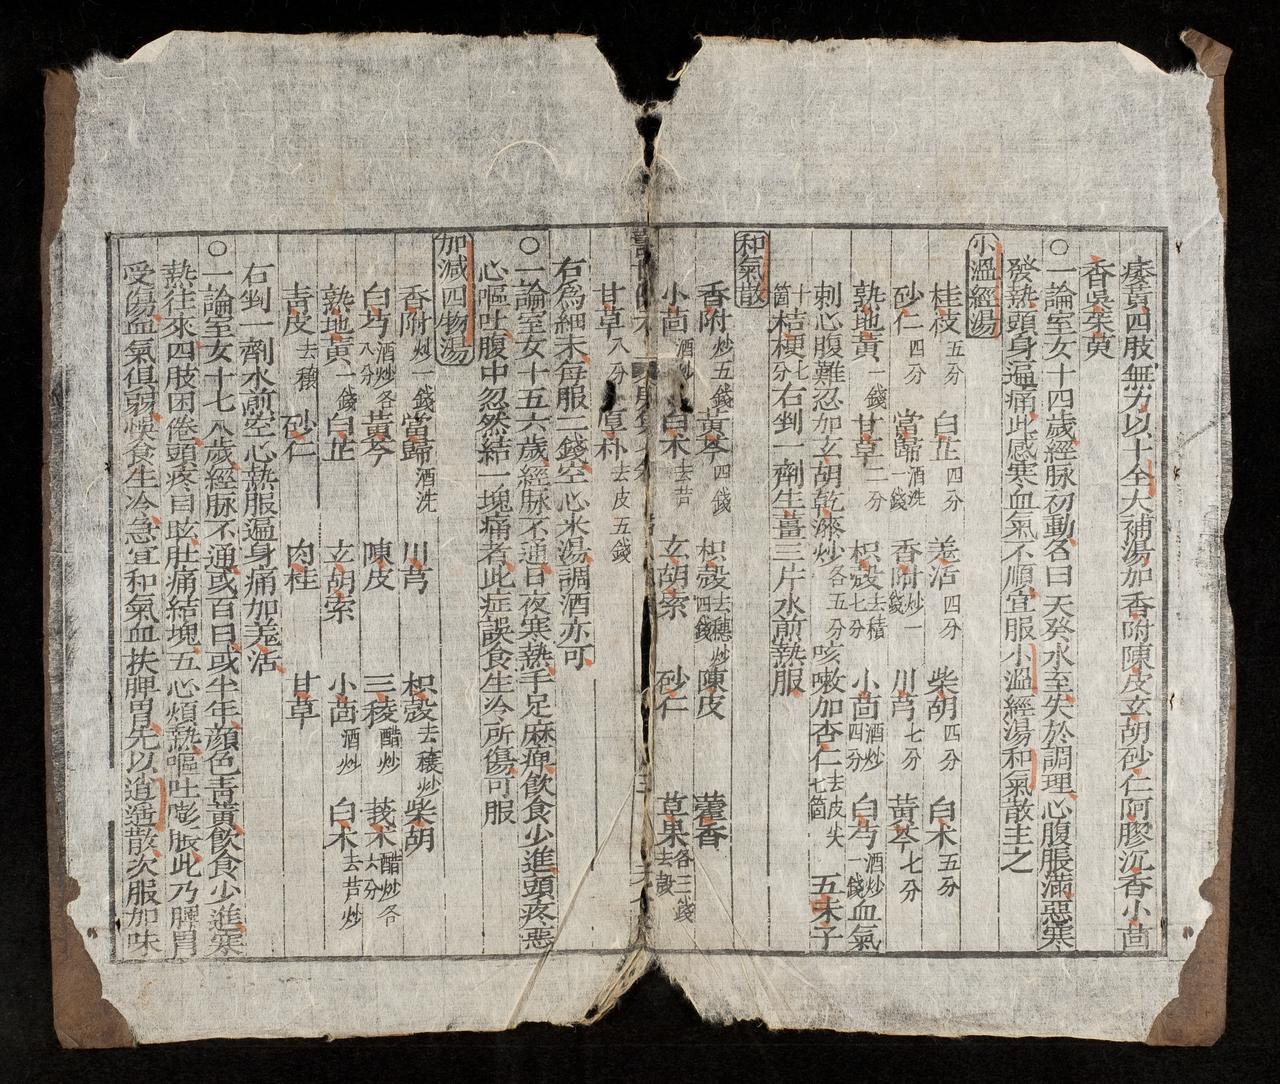 痿黃四肢無力以十全大補湯加香附陳皮玄胡砂仁阿膠沉香小茴
香吳茱萸
○一論室女十四歲經脉初動名曰天癸水至失於調理心腹脹滿惡寒
發熱頭身遍痛此感寒血氣不順宜服小溫經湯和氣散主之
小溫經湯
桂枝五分 白芷四分 羗活四分 柴胡四分 白术五分
砂仁四分 當歸酒洗一錢 香附炒一錢 川芎七分 黃芩七分
熟地黃一錢 甘草二分 枳殼去穰七分 小茴酒炒四分 白芍酒炒一錢 血氣
刺心腹難忍加玄胡乾漆炒各五分 咳嗽加杏仁去皮尖七箇 五味子
十箇桔梗七分右剉一劑生薑三片水煎熱服
和氣散
香附炒五錢 黃芩四錢 枳殼去穰炒四錢 陳皮 藿香
小茴酒炒 白术去芦 玄胡索 砂仁 草果去殼各三錢
甘草八分 厚朴去皮五錢
右爲細末每服二錢空心米湯調酒亦可
○一論室女十五六歲經脉不通日夜寒熱手足麻痺飲食少進頭疼惡
心嘔吐腹中忽然結一塊痛者此症誤食生冷所傷可服
加減四物湯
香附炒一錢 當歸酒洗 川芎 枳殼去穰炒 柴胡
白芍酒炒各八分 黃芩 陳皮 三稜醋炒 莪朮醋炒各六分
熟地黃一錢 白芷 玄胡索 小茴酒炒 白术去芦炒
青皮去穰 砂仁 肉桂 甘草
右剉一劑水煎空心熱服遍身痛加羗活
○一論室女十七八歲經脉不通或百日或半年顏色青黃飲食少進寒
熱往來四肢困倦頭疼目眩肚痛結塊五心煩熱嘔吐膨脹此乃脾胃
受傷血氣俱弱悞食生冷急宜和氣血扶脾胃先以逍遙散次服加味